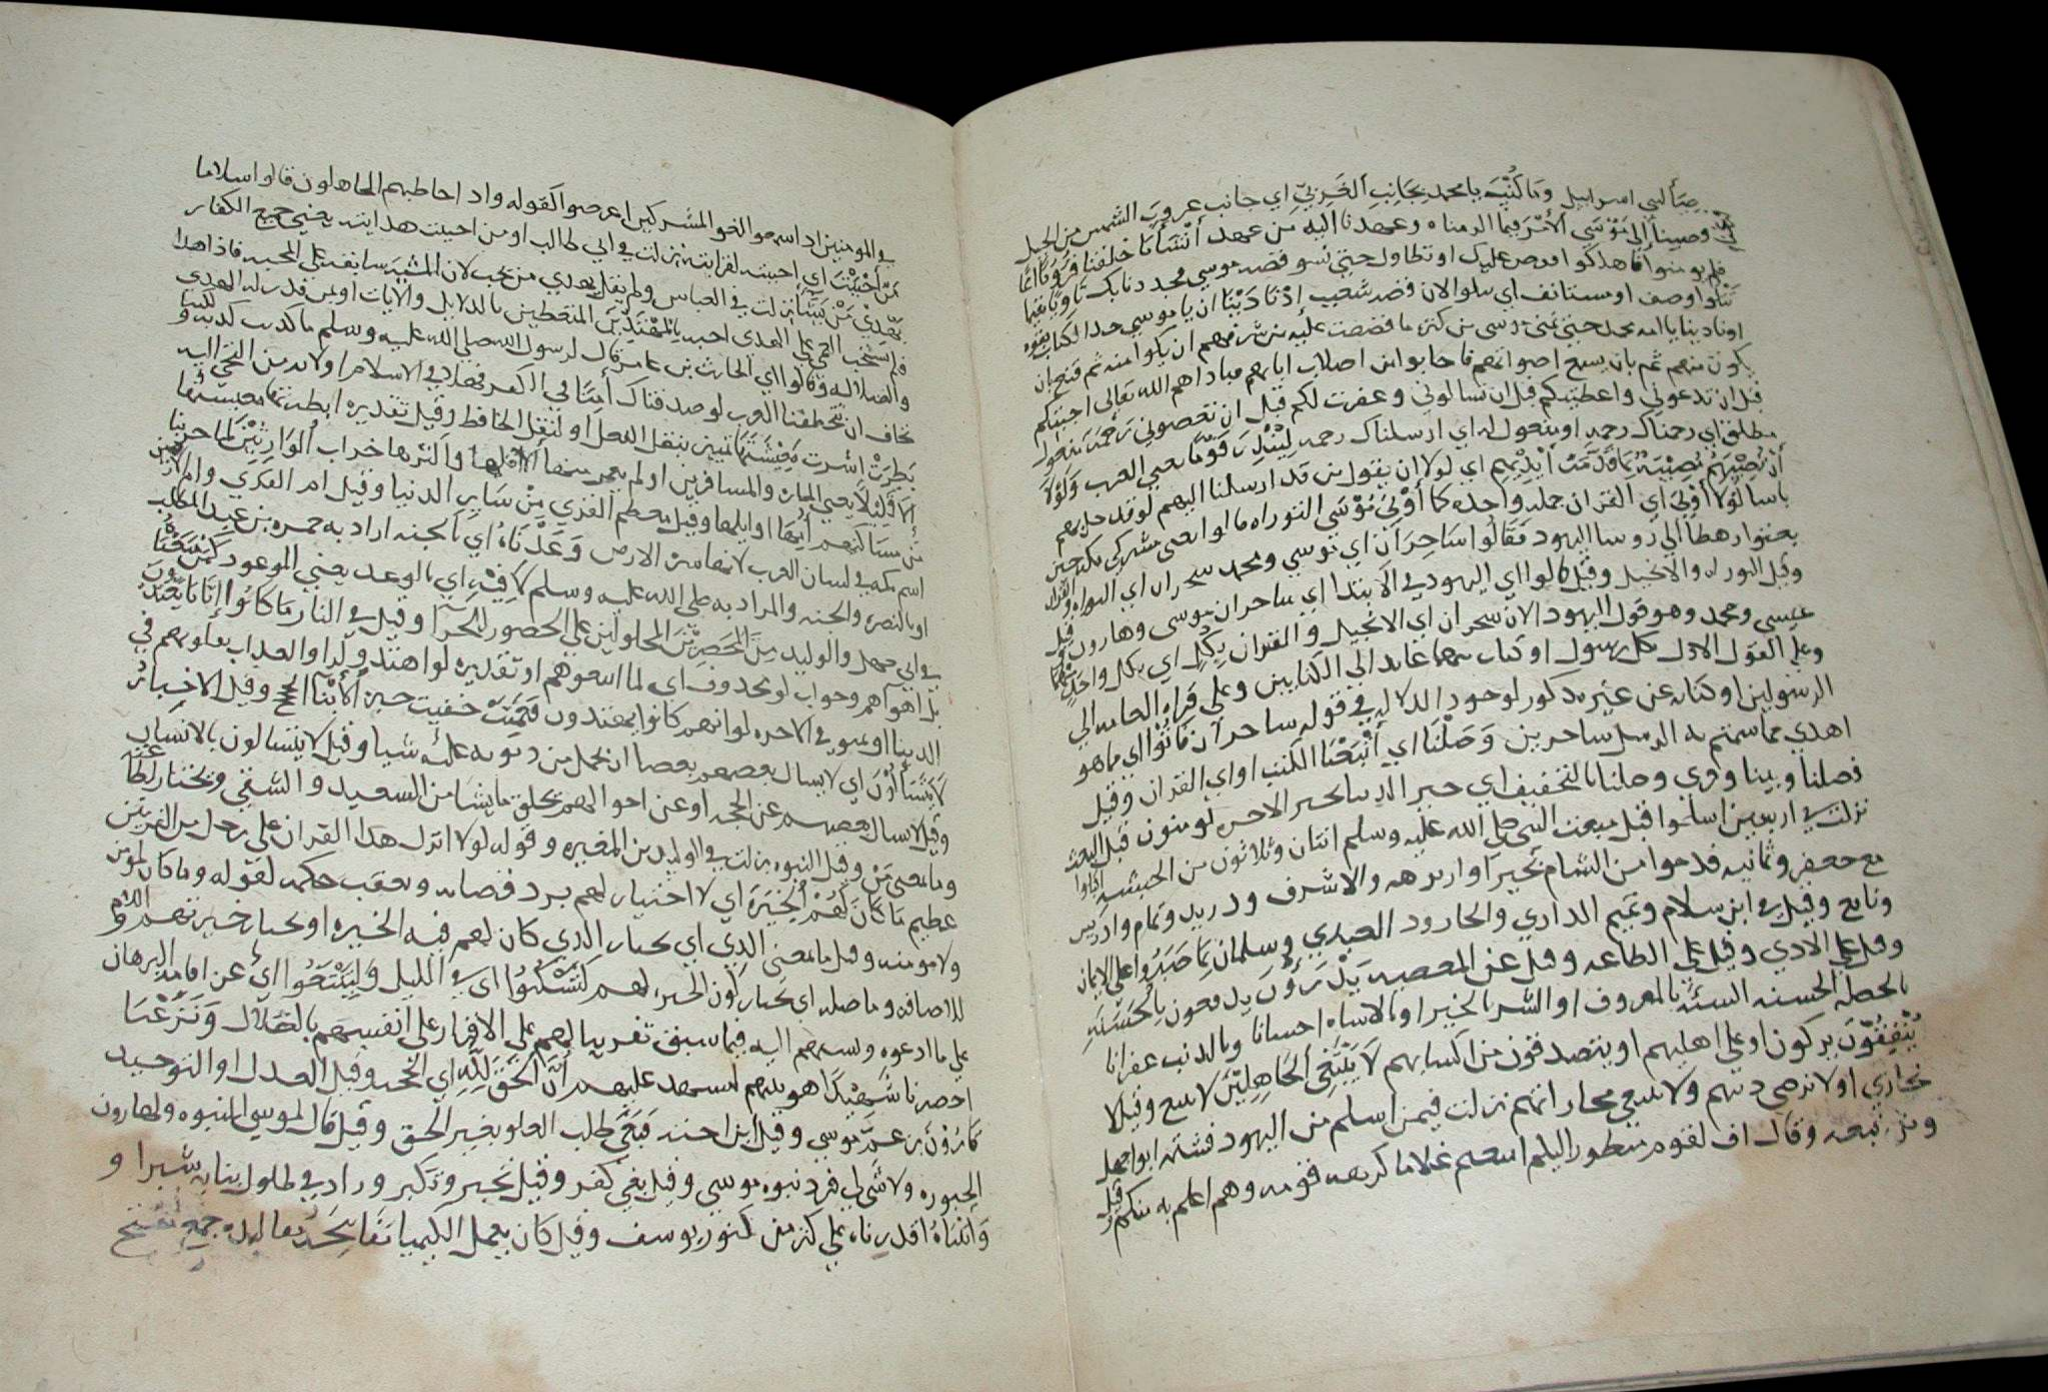 لبني اسراييل وَمَا كُنْتَ يا محمد بِجَانِبِ الْغَرْبِيِّ اي جانب غروب الشمس من الجبل
وصينا إِلَى مُوْسَى الْأَمْرَ فيما الزمناه وعهدنا اليه من عهد أَنْشَأْنَا خلقنا قُرُوْنًا امما
تَتْلُوا اوصف او مستانف اي تتلوا الان قصه شعيب اِذْ نَادَيْنَا ان يا موسي خذا الكتاب بقوه
او نادينا يا امه محمد حتي تمني موسى من كثره ما قصصت عليه من شرفهم ان يكونوا منه ثم فتح ان
يكون منهم ثم بان يسمع اصواتهم فاجابوا من اصلاب ابايهم مبادا هم الله تعالى اجبتكم
قبل ان تدعوني واعطيتكم قبل ان تسالوني وغفرت لكم قبل ان تعصوني رَحْمَةً مفعول
مطلق اي رحمناك رحمه او مفعول له اي ارسلناك رحمه لِتُنْذِرَ قَوْمًا يعني العرب وَلَوْلَا
أَنْ تُصِيْبَهُمْ مُصِيْبَةٌ بِمَا قَدَّمَتْ أَيْدِيْهِمْ اي لولا ان يقولوا من قد ارسلنا اليهم لوقد حل بهم
باسا لَوْلَا أُوْتِيَ اي القران جمله واحده كَمَا أُوْتِيَ مُوْسَى التوراه قالوا يعني مشركي مكه حين
بعثوا رهطا الي روسا اليهود فَقَالُوا سَاحِرَانِ اي موسي ومحمد سحران اي التوراه والقران
وقيل التوراه والانجيل وقيل قالوا اي اليهود في الابتدا اي ساحران موسى وهارون وقيل
عيسى ومحمد وهو قول اليهود الان سحران اي الانجيل والقران بِكُلٍّ اي بكل واحد منهما
وعلي القول الاول بكل رسول او كتاب منهما عايد الي الكتابين وعلي قراه العامه الي
الرسولين او كنايه عن غير مذكور لوجود الدلاله في قوله ساحران فَأْتُوْا اي بما هو
اهدي مما سمتم به الرسل ساحرين وَصَّلْنَا اي أَتْبَعْنَا الكتب او اي القران وقيل
فصلنا وبينا وقري وصلنا بالتخفيف اي خبر الدنيا بخبر الاخره يومنون قبل البعث
نزلت في اربعين اسلموا قبل مبعث النبي صلى الله عليه وسلم اثنان وثلاثون من الحبشه اقبلوا
مع جعفر وثمانيه قدموا من الشام بحيرا وابرهه والاشرف ودريد وتمام وادريس
ونافع وقيل في ابن سلام وتميم الداري والجارود العبدي وسلمان بِمَا صَبَرُوْا على الايمان
وقيل علي الاذي وقيل علي الطاعه وقيل عن المعصيه يَدْرَءُوْنَ يدفعون بِالْحَسَنَةِ
بالخصله الحسنه السيئه بالمعروف او الشر بالخير او بالاساه احسانا وبالذنب غفرانا
يُنْفِقُوْنَ يزكون او علي اهليهم او يتصدقون من اكسابهم لَا نَبْتَغِي الْجَاهِلِيْنَ لا نتبع وقيل لا
نجازي او لا نرضي دينهم ولا نبتغي مجاراتهم نزلت فيمن اسلم من اليهود فشتمه ابو جهل
ومن تبعه وقال اف لقوم منظور اليهم اتبعتم غلاما كرهه قومه وهم اعلم به منكم وقيل
في المومنين اذا سمعوا اللغو المشركين اعرضوا كقوله واذا خاطبهم الجاهلون قالوا سلاما
مَنْ أَحْبَبْتَ اي احببته لقرابته نزلت في ابي طالب او من احببت هدايته يعني جميع الكفار
يَهْدِيْ مَنْ يَشَاءُ نزلت في العباس ولم يقل يهدي من يحب لان المشيه سابقه علي المحبه فاذا هدا
فلم يستحب العمي علي الهدى احبه بِالْمُهْتَدِيْنَ المتعظين بالدلايل والايات او من قدر له الهدي
والضلاله وَقَالُوا اي الحارث بن عامر قال لرسول الله صلى الله عليه وسلم ما كذبت كذبه و
نخاف ان تتخطفنا العرب لو صدقناك أَمِنًا في الكفر فهلا في الاسلام او لا بد من اليه
بَطِرَتْ اشرت مَعِيْشَتَهَا تمييز بنقل الفعل او لنقل الخافض وقيل تقديره ابطرتها معيشتها
اِلَّا قَلِيْلًا يعني الماره والمسافرين او لم يعمر منها اقلها واكثرها خراب الْوَارِثِيْنَ لما خربنا
من مساكنهم أُمِّهَا اوايلها وقيل معظم القري من ساير الدنيا وقيل ام القري وام الارضين
اسم مكه في لسان العرب لانها من الارض وَعَدْنَاهُ اي الجنه اراد به حمزه بن عبد المطلب
او بالنصره والجنه والمراد به صلى الله عليه وسلم لَاقِيْهِ اي بالوعد يعني الموعود كَمَنْ مَتَّعْنَاهُ
في ابي جهل والوليد مِنَ الْمُحْضَرِيْنَ المحاولين علي الحضور للجزا وقيل في النار مَا كَانُوْا إِيَّانَا يَعْبُدُوْنَ
بل اهواهم وجواب لو محذوف اي لما اتبعوهم او تقديره لو اهتدوا وراوا العذاب بقلوبهم في
الدنيا او في الاخره لو انهم كانوا يهتدون فَعَمِيَتْ خفيت حيره الْأَنْبَاءُ الحجج وقيل الاخبار
لَا يَتَسَاءَلُوْنَ اي لا يسال بعضهم بعضا ان يحمل من ذنوبه عليه شيا وقيل لا يتسالون بالانساب
وقيل لا يسال بعضهم عن الحجه او عن احوالهم يخلق ما يشا من السعيد والشقي ويختار لطاعته
وما بمعنى مَنْ وقيل النبوه نزلت في الوليد بن المغيره وقوله لولا انزل هذا القران علي رجل من القريتين
عظيم مَا كَانَ لَهُمُ الْخِيَرَةُ اي لا اختيار لهم برد قضايه وتعقب حكمه لقوله وما كان لمومن
ولا مومنه وقيل ما بمعنى الذي اي يختار الذي كان لهم فيه الخيره او يختار خير تهم اللام
للاضافه وما صله اي يختار كون الخير لهم لِتَسْكُنُوْا اي في الليل وَلِتَبْتَغُوْا اي عن اقامه البرهان
علي ما ادعوه ونسبتهم اليه فيما سبق تقريبا لهم علي الاقرار على انفسهم بالضلال وَنَزَعْنَا
احضرنا شَهِيْدًا هو نبيهم ليشهد عليهم أَنَّ الْحَقَّ لِلَّهِ اي الحجه وقيل العدل او التوحيد
قَارُوْنَ بن عمّ موسى وقيل ابن اخته فَبَغَى طلب العلو بغير الحق وقيل قال لموسى النبوه ولهارون
الحبوره ولا شي لي فرد نبوه موسي وقيل بغي كفر وقيل تجبر وتكبر وزاد في طول ثيابه شبرا و
وَاتَيْنَاهُ اقدرناه علي كنز من كنوز يوسف وقيل كان يعمل الكيميا مَفَاتِحَهُ مقاليده جمع مفتح